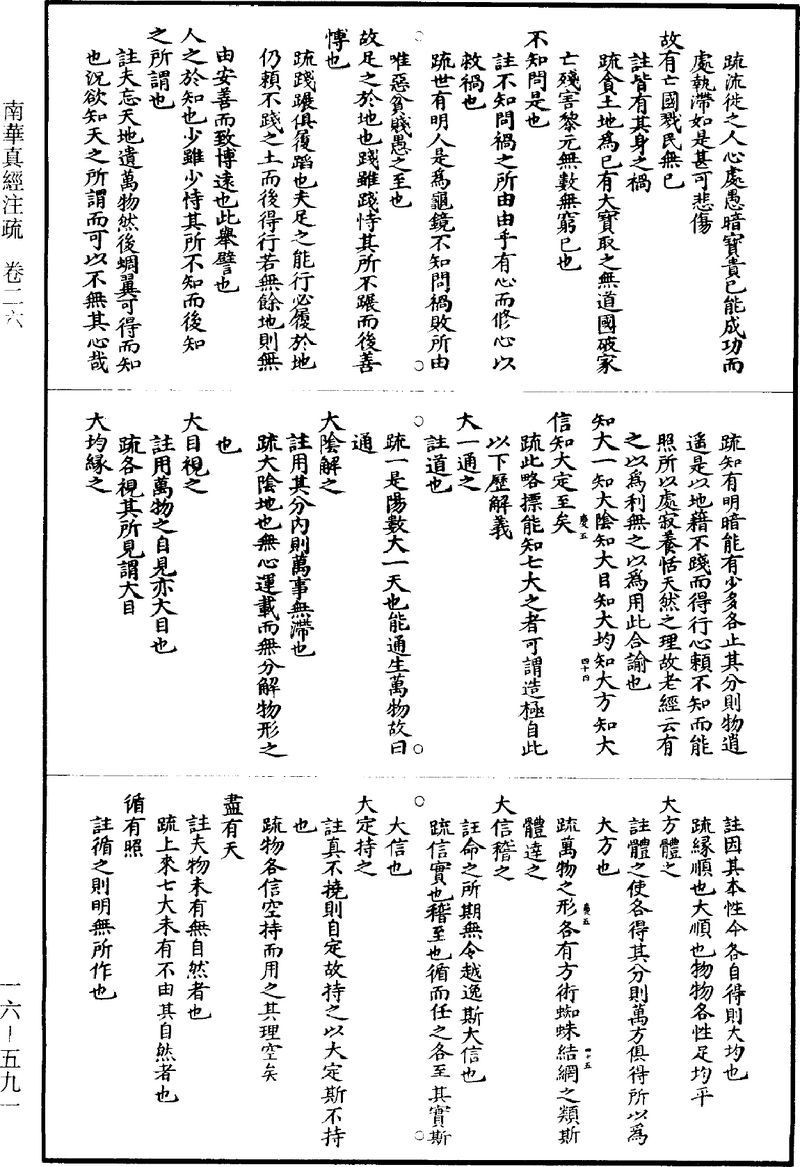 疏流徙之人心處愚暗寶貴已能成功而
處執滯如是甚可悲傷
故有亡國戮民無已
註皆有其身之禍
疏貪土地為已有大寶取之無道國破家
亡殘害黎元無數無窮已也
不知問是也
註不知問禍之所由由乎有心而修心以
救禍也
疏世有明人是為龜鏡不知問禍敗所由
唯惡貧賤愚之至也
故足之於地也踐雖踐恃其所不蹍而後善
慱也
疏踐蹍俱履蹈也夫足之能行必履於地
仍賴不踐之土而後得行若無餘地則無
由安善而致博遠也此舉譬也
人之於知也少雖少恃其所不知而後知
之所謂也
註夫忘天地遺萬物然後蜩翼可得而知
也況欲知天之所謂而可以不無其心哉
疏知有明暗能有少多各止其分則物逍
遥是以地藉不踐而得行心賴不知而能
照所以處寂養恬天然之理故老經云有
之以為利無之以為用此合諭也
知大一知大陰知大目知大均知大方知大
信知大定至矣
疏此略摽能知七大之者可謂造極自此
以下歷解義
大一通之
註道也
疏一是陽數大一天也能通生萬物故曰
通
大陰解之
註用其分內則萬事無滯也
疏大陰地也無心運載而無分解物形之
也
大目視之
註用萬物之自見亦大目也
疏各視其所見謂大目
大均緣之
註因其本性令各自得則大均也
疏緣順也大順也物物各性足均平
大方體之
註體之使各得其分則萬方俱得所以為
大方也
疏萬物之形各有方術蜘蛛結網之類斯
體達之
大信稽之
註命之所期無令越逸斯大信也
疏信實也稽至也循而任之各至其實斯
大信也
大定持之
註真不撓則自定故持之以大定斯不持
也
疏物各信空持而用之其理空矣
盡有天
註夫物未有無自然者也
疏上來七大未有不由其自然者也
循有照
註循之則明無所作也
慶五
四十四
慶五
四十五
南華真經注疏 卷二六
一六－五九一